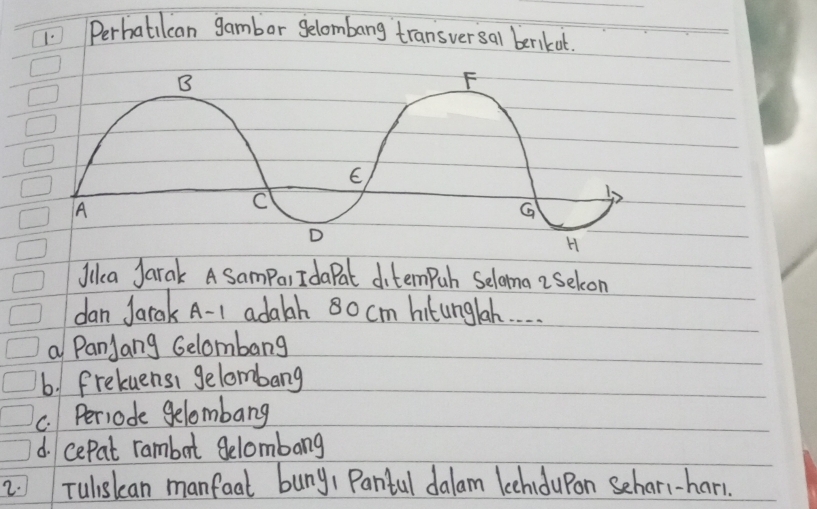 1. Perhatikan gambar gelombang transversal berikut.
B
F
E
A
C
G
I
D
H
Jika Jarak A Sampai I daPat ditemPuh Selama 2 Sekon
dan Jarak A-1 adalah 80 cm hitunglah....
a PanJang Gelombang
b. frekuensi gelombang
c. Periode gelombang
d. cePat rambat gelombang
2. Tuliskan manfaat bunyi Pantul dalam kehiduPan sehari-hari.